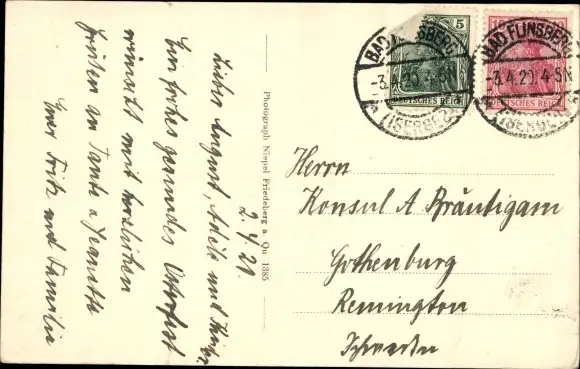 2. 4. 21.
Lieber August, Adele und Kinder,
Ein frohes gesundes Osterfest
wünscht mit herzlichen
Grüßen an Tante u Jeanette
Euer Fritz und Familie
Photograph Niepel Friedeberg a. Qu. 1385
5
DEUTSCHES REICH
BAD FLINSBERG
-3.4.20.4-5N
(ISERGEB.)
10
DEUTSCHES REICH
BAD FLINSBERG
-3.4.20.4-5N
(ISERGEB.)
Herrn
Konsul A Bräutigam
Gothenburg
Remington
Schweden